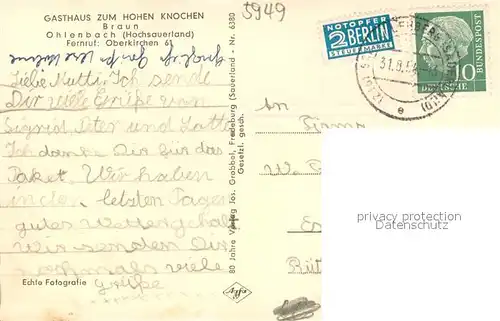 5949
GASTHAUS ZUM HOHEN KNOCHEN
Braun
Ohlenbach (Hochsauerland)
Fernruf: Oberkirchen 61
Liebe Mutti, Ich sende
Dir viele Grüße von
Sigrid, Peter und Lotte
Ich danke Dir für das
Paket. Wir haben
in den letzten Tagen
gutes Wetter gehabt
Wir senden Dir
nochmals viele
Grüße
Echte Fotografie
80 Jahre Verlag Jos. Grobbel, Fredeburg (Sauerland - Nr. 6380
Gesetzl. gesch.
NOTOPFER
2 BERLIN
STEUERMARKE
31.8.54
e
10
DEUTSCHE
BUNDESPOST
An
Firma
W.
Rüt
privacy protection
Datenschutz